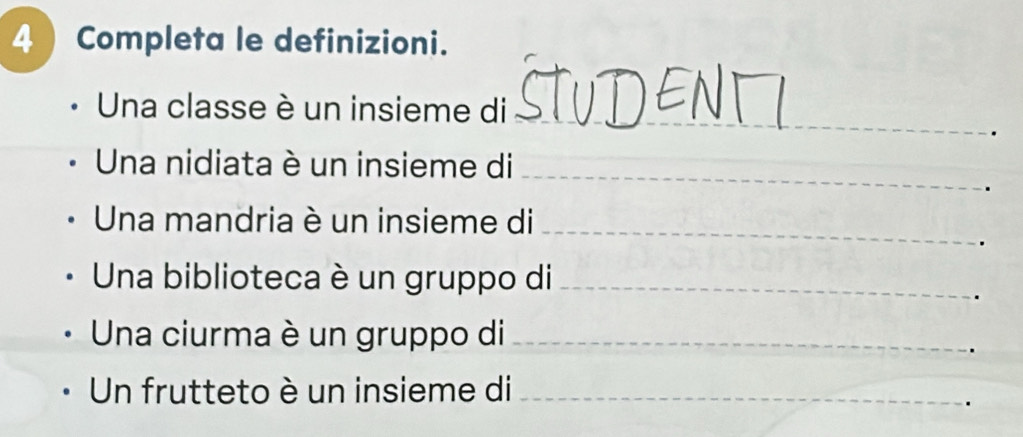 4 Completa le definizioni.
• Una classe è un insieme di STUDENTI.
• Una nidiata è un insieme di .
• Una mandria è un insieme di .
• Una biblioteca è un gruppo di .
• Una ciurma è un gruppo di .
• Un frutteto è un insieme di .